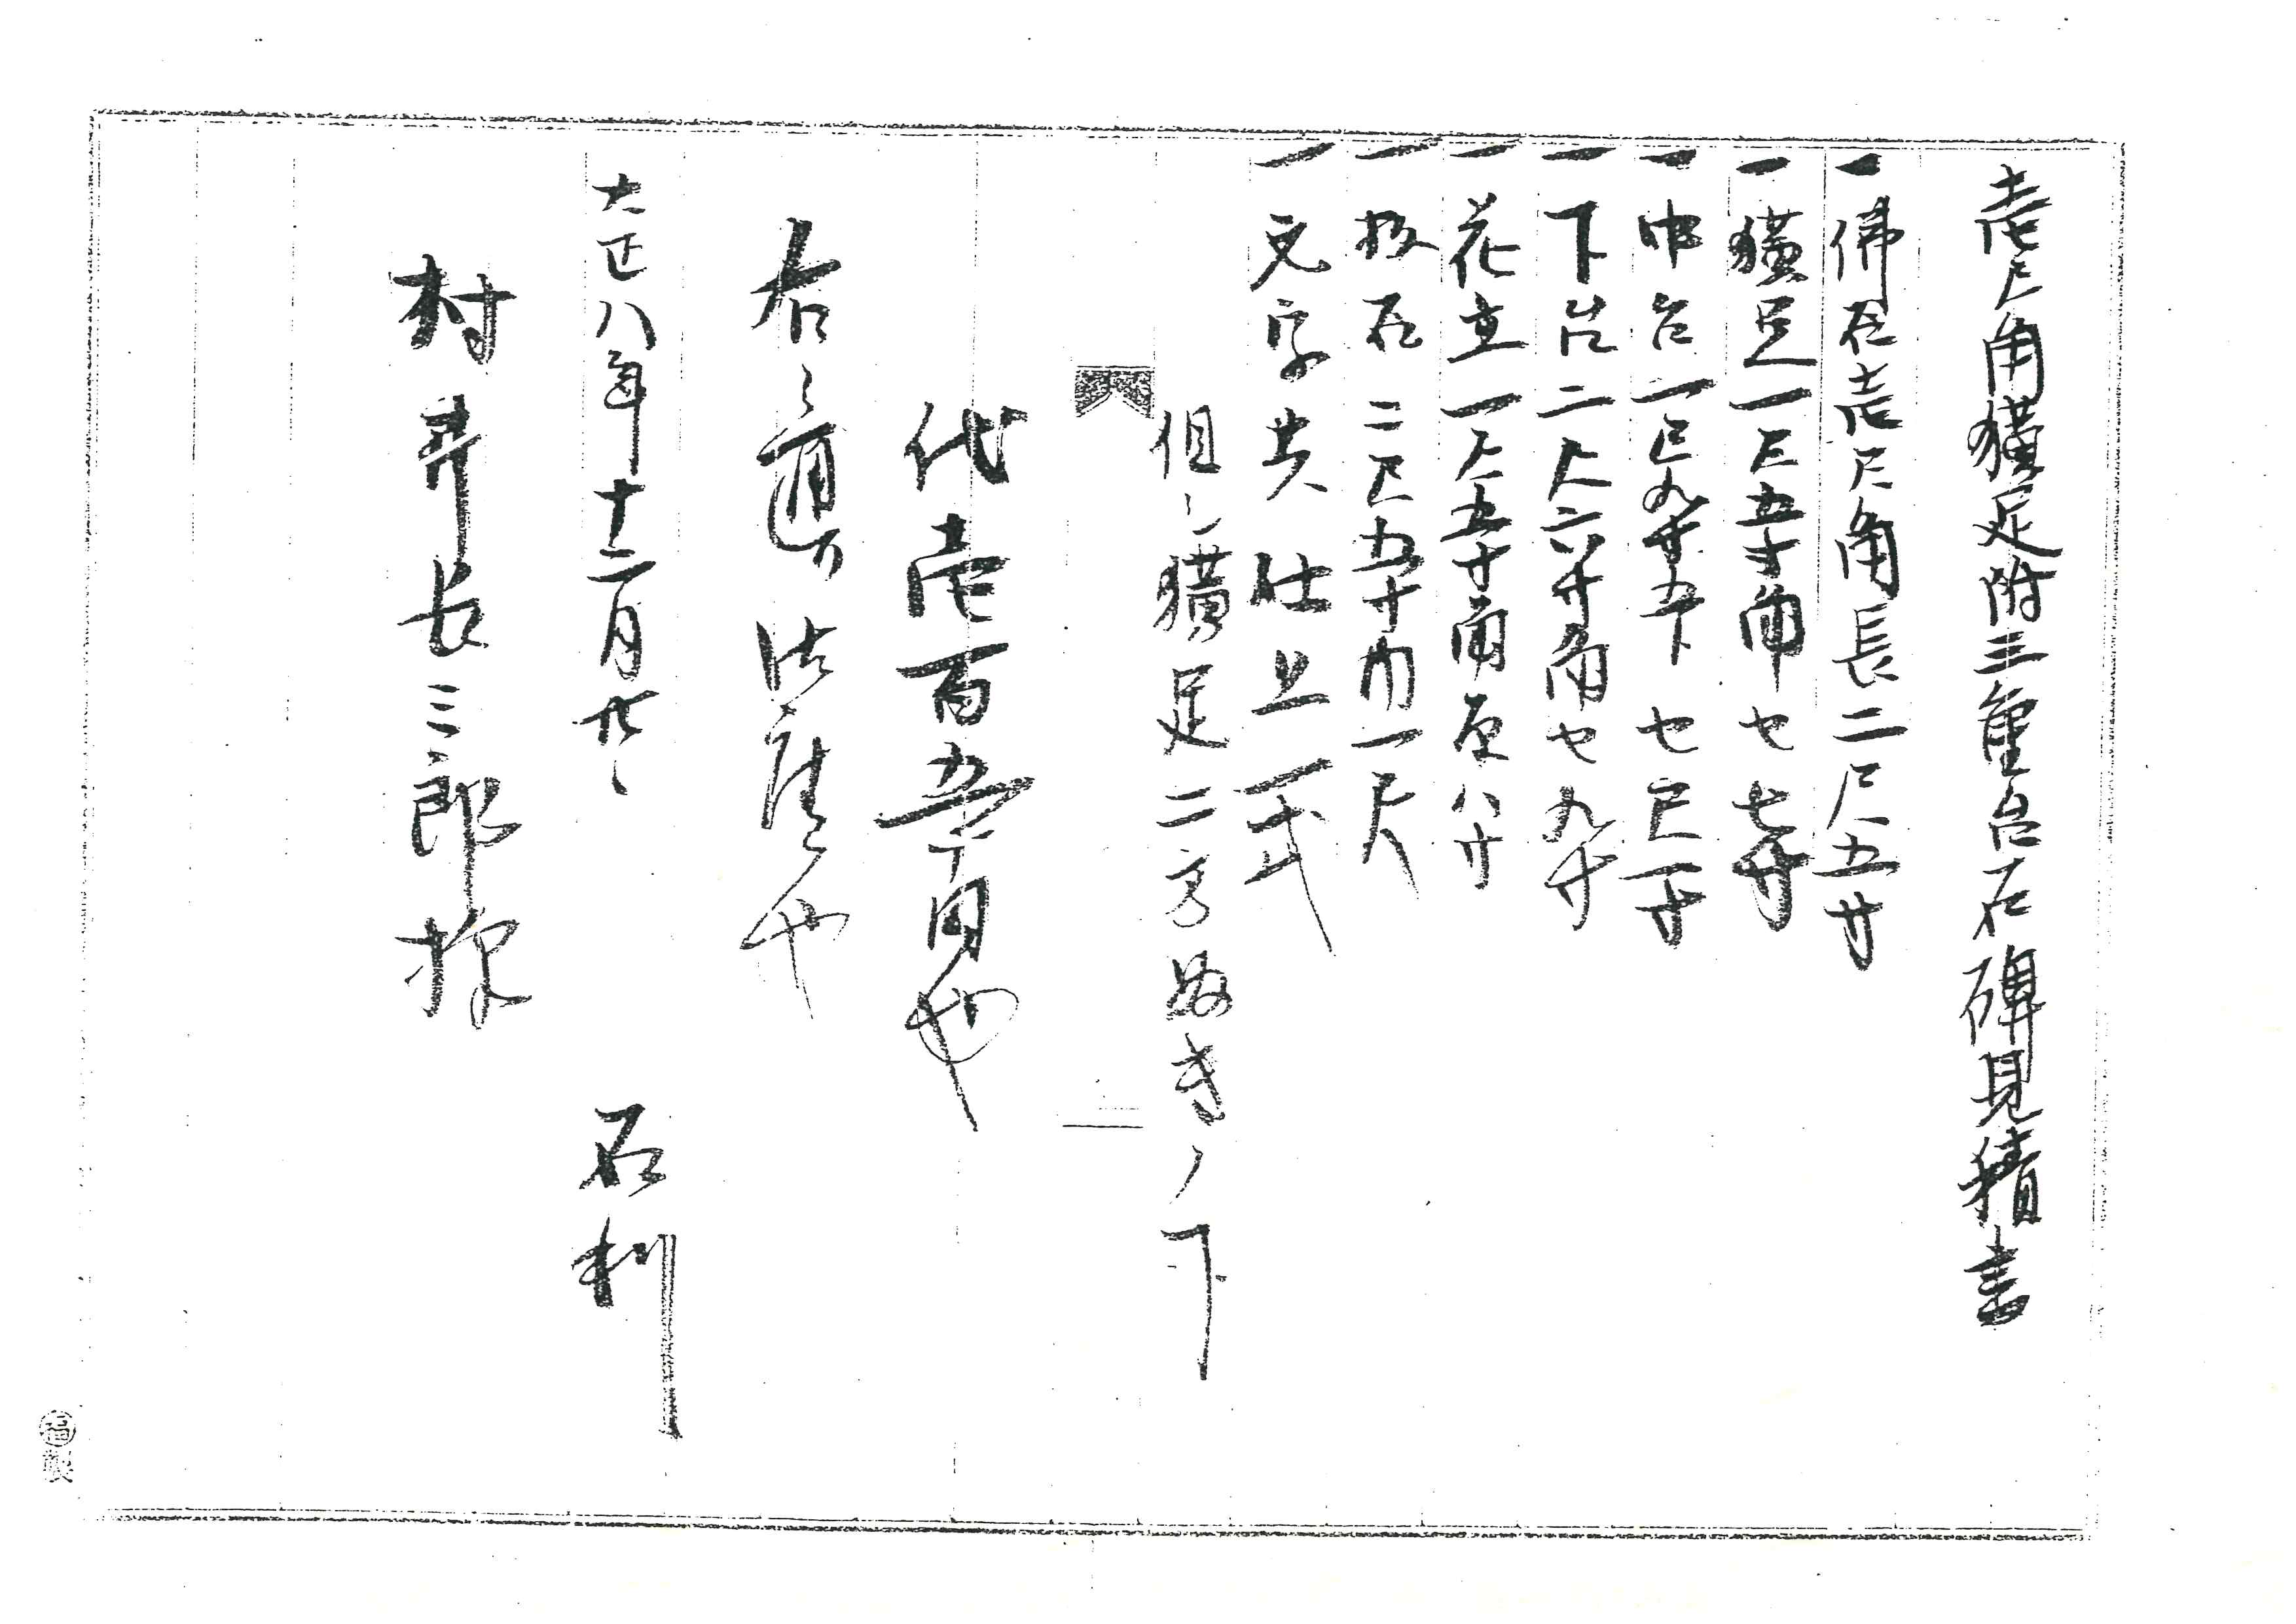 壱尺角猫足附三重台石碑見積書
一 佛石壱尺角長二尺五寸
一 猫足一尺五寸角セ七寸
一 中台一尺九寸五卜セ尺一寸
一 下台二尺六寸角セ九寸
一 花立一尺五寸角厚八寸
一 板石二尺五寸巾一尺
一 文字共仕上一式
但シ猫足二方ぬきノ下
代壱百五十円也
右之通リ
大正八年十二月廿
石利
村井長三郎様